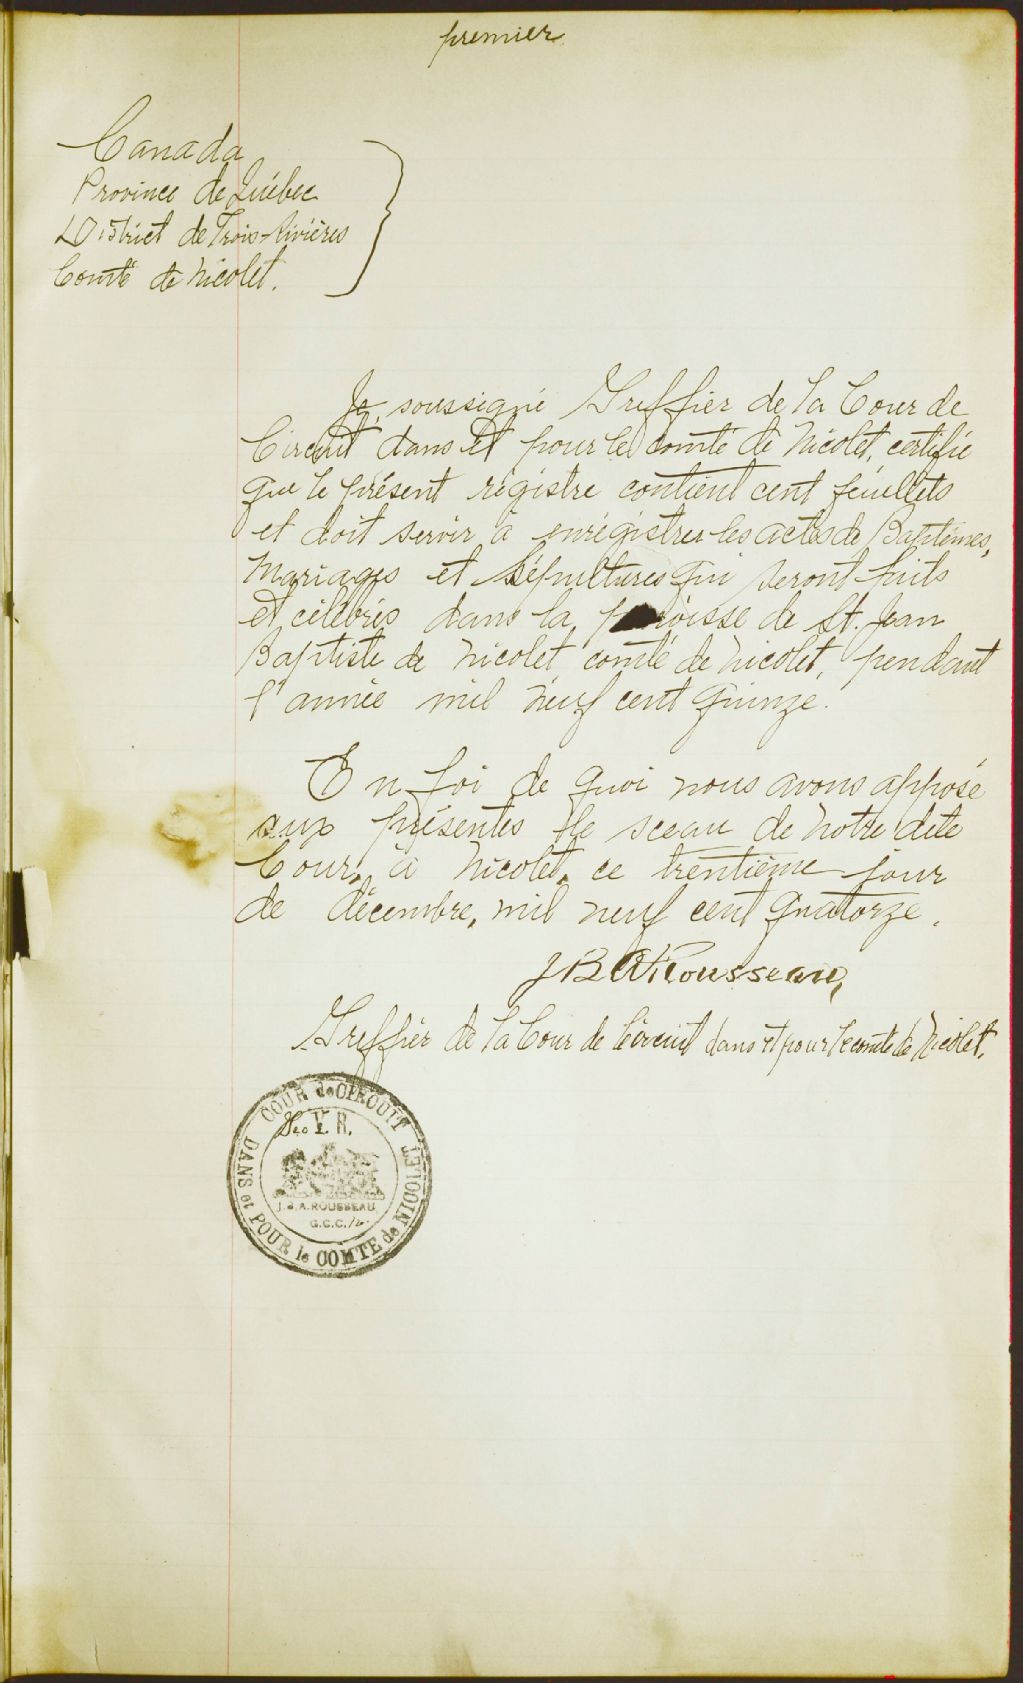 premier
Canada
Province de Québec
District de Trois-Rivières
Comté de Nicolet.
Je, soussigné Greffier de la Cour de
Circuit dans et pour le comté de Nicolet, certifie
que le présent régistre contient cent feuillets
et doit servir à enrégistrer les actes de Baptêmes,
Mariages et Sépultures qui seront faits
et célébrés dans la paroisse de St. Jean
Baptiste de Nicolet, comté de Nicolet, pendant
l'année mil neuf cent quinze.
En foi de quoi nous avons apposé
aux présentes le sceau de notre dite
Cour, à Nicolet, ce trentième jour
de décembre, mil neuf cent quatorze.
J B A Rousseau,
Greffier de la Cour de Circuit dans et pour le comté de Nicolet.
COUR de CIRCUIT
DANS et POUR le COMTE de NICOLET
Geo V. R.
J.B.A. ROUSSEAU
G.C.C.